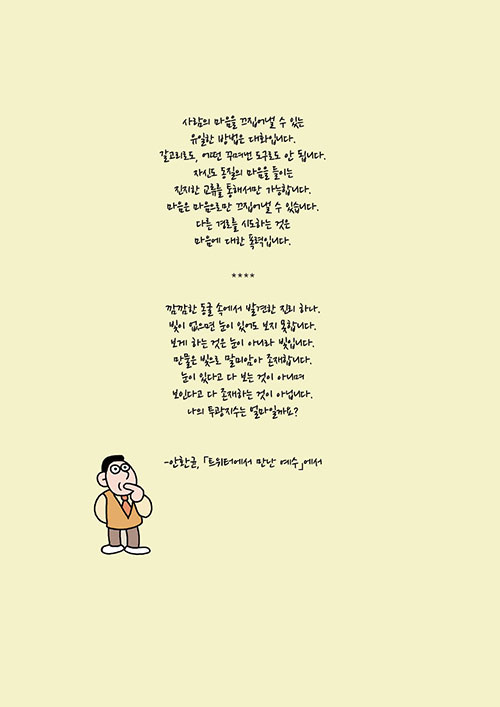 사람의 마음을 끄집어낼 수 있는
유일한 방법은 대화입니다.
갈고리로도, 어떤 꾸며낸 도구로도 안 됩니다.
자신도 동질의 마음을 들이는
진지한 교류를 통해서만 가능합니다.
마음은 마음으로만 끄집어낼 수 있습니다.
다른 경로를 시도하는 것은
마음에 대한 폭력입니다.
****
깜깜한 동굴 속에서 발견한 진리 하나.
빛이 없으면 눈이 있어도 보지 못합니다.
보게 하는 것은 눈이 아니라 빛입니다.
만물은 빛으로 말미암아 존재합니다.
눈이 있다고 다 보는 것이 아니며
보인다고 다 존재하는 것이 아닙니다.
나의 투광지수는 얼마일까요?
-안한균, 「트위터에서 만난 예수」에서